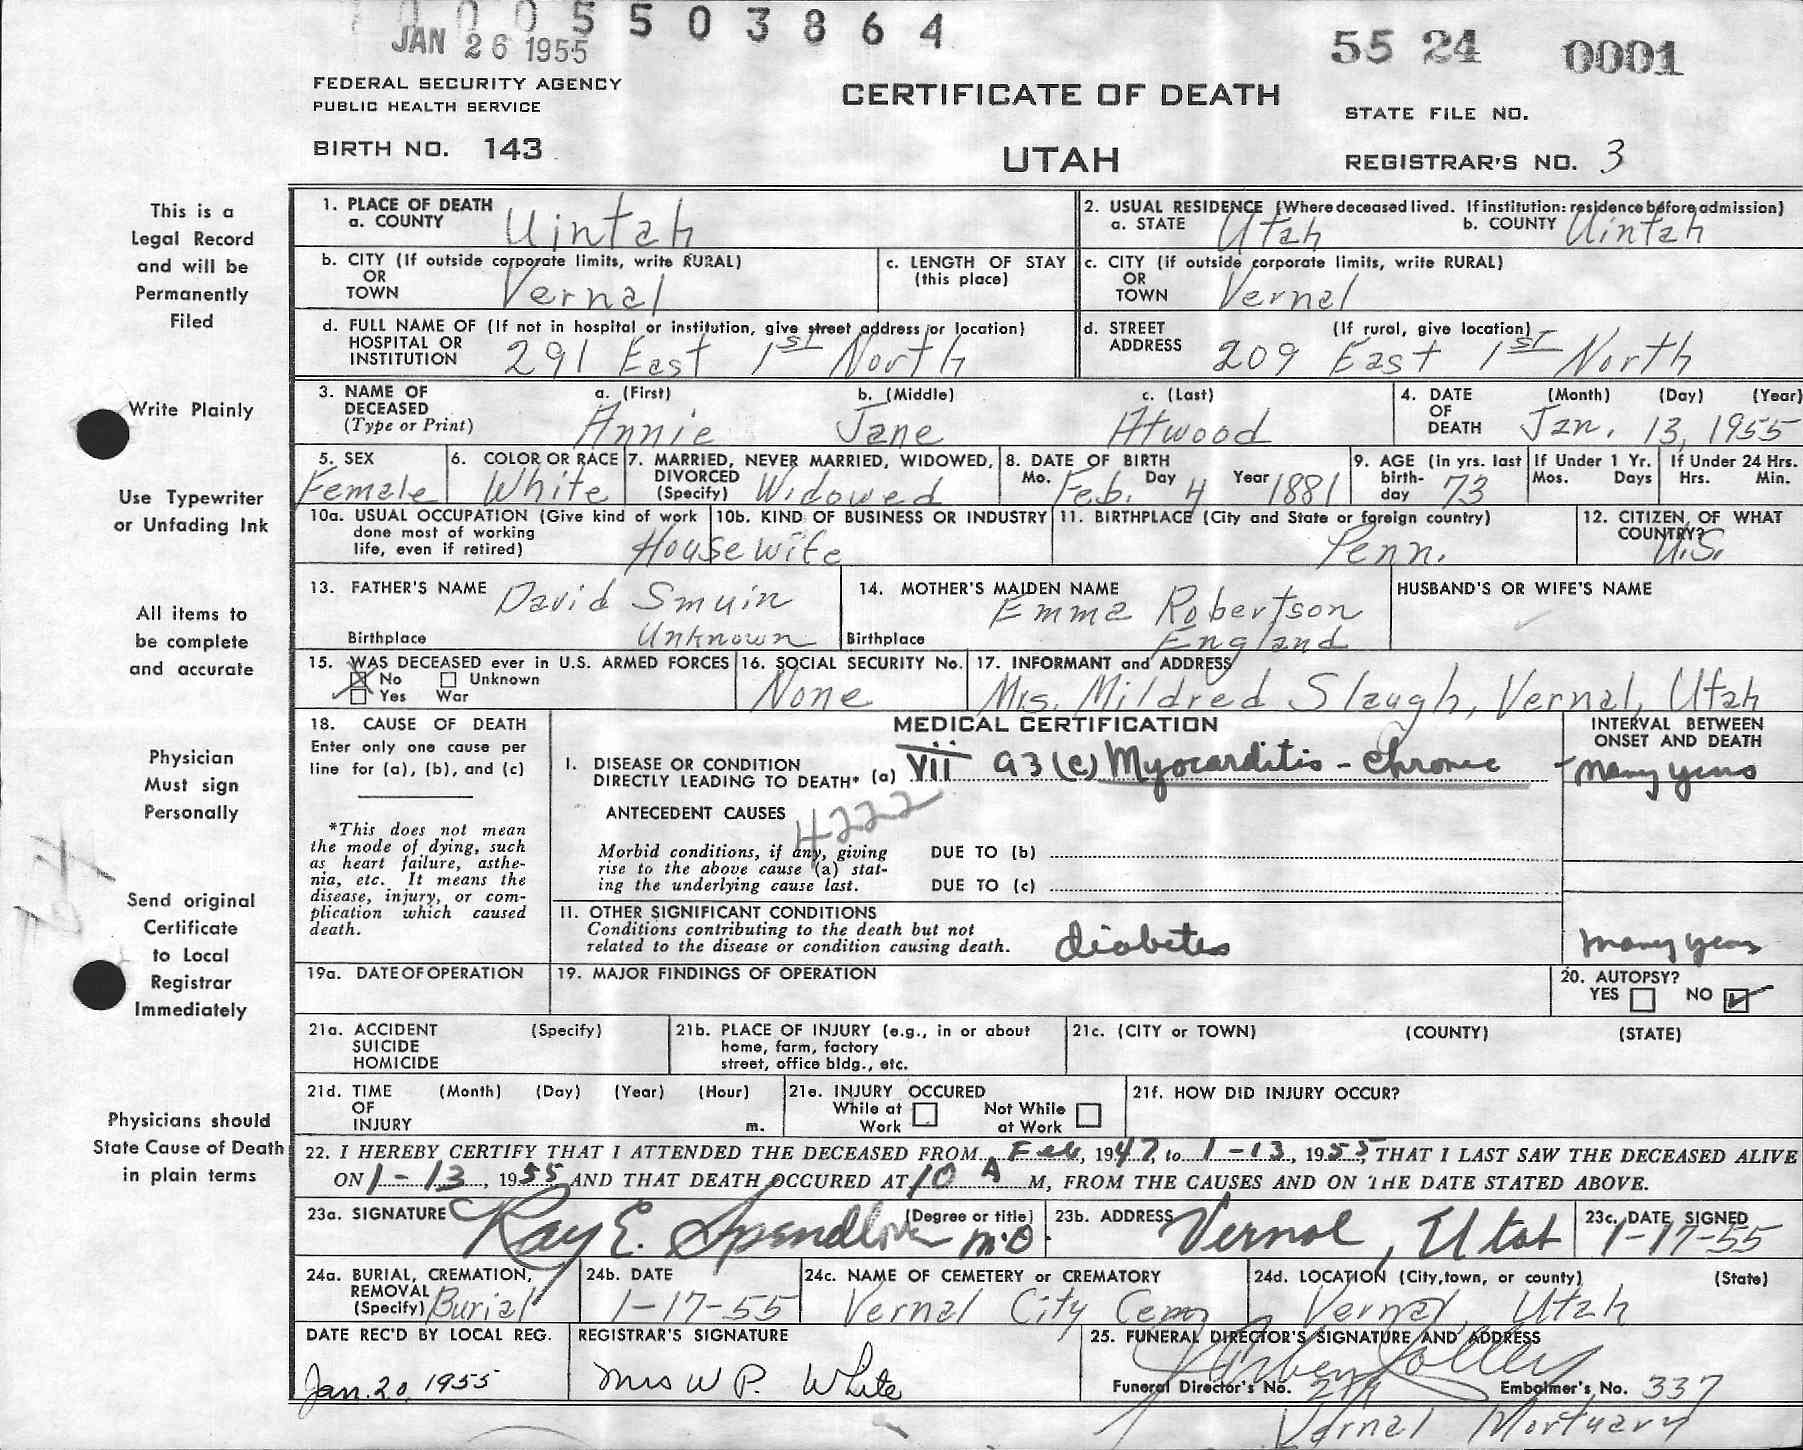 0005503864
JAN 26 1955
55 24 0001
FEDERAL SECURITY AGENCY
PUBLIC HEALTH SERVICE
CERTIFICATE OF DEATH
STATE FILE NO.
BIRTH NO. 143
UTAH
REGISTRAR'S NO. 3
This is a
Legal Record
and will be
Permanently
Filed
Write Plainly
Use Typewriter
or Unfading Ink
All items to
be complete
and accurate
Physician
Must sign
Personally
Send original
Certificate
to Local
Registrar
Immediately
Physicians should
State Cause of Death
in plain terms
1. PLACE OF DEATH
a. COUNTY Uintah
2. USUAL RESIDENCE (Where deceased lived. If institution: residence before admission)
a. STATE Utah b. COUNTY Uintah
b. CITY (If outside corporate limits, write RURAL)
OR
TOWN Vernal
c. LENGTH OF STAY
(this place)
c. CITY (if outside corporate limits, write RURAL)
OR
TOWN Vernal
d. FULL NAME OF (If not in hospital or institution, give street address or location)
HOSPITAL OR
INSTITUTION 291 East 1st North
d. STREET (If rural, give location)
ADDRESS 209 East 1st North
3. NAME OF
DECEASED
(Type or Print)
a. (First) b. (Middle) c. (Last)
Annie Jane Atwood
4. DATE
OF
DEATH
(Month) (Day) (Year)
Jan. 13, 1955
5. SEX
Female
6. COLOR OR RACE
White
7. MARRIED, NEVER MARRIED, WIDOWED,
DIVORCED
(Specify) Widowed
8. DATE OF BIRTH
Mo. Feb. Day 4 Year 1881
9. AGE (in yrs. last
birth-
day 73
If Under 1 Yr.
Mos. Days
If Under 24 Hrs.
Hrs. Min.
10a. USUAL OCCUPATION (Give kind of work
done most of working
life, even if retired) Housewife
10b. KIND OF BUSINESS OR INDUSTRY
11. BIRTHPLACE (City and State or foreign country)
Penn.
12. CITIZEN OF WHAT
COUNTRY?
U.S.
13. FATHER'S NAME David Smuin
Birthplace Unknown
14. MOTHER'S MAIDEN NAME
Emma Robertson
Birthplace England
HUSBAND'S OR WIFE'S NAME
15. WAS DECEASED ever in U.S. ARMED FORCES
No Unknown
Yes War
16. SOCIAL SECURITY No.
None
17. INFORMANT and ADDRESS
Mrs. Mildred Slaugh, Vernal, Utah
18. CAUSE OF DEATH
Enter only one cause per
line for (a), (b), and (c)
*This does not mean
the mode of dying, such
as heart failure, asthe-
nia, etc. It means the
disease, injury, or com-
plication which caused
death.
MEDICAL CERTIFICATION
INTERVAL BETWEEN
ONSET AND DEATH
I. DISEASE OR CONDITION
DIRECTLY LEADING TO DEATH* (a) VII 93(c) Myocarditis - Chronic - many years
ANTECEDENT CAUSES 4222
Morbid conditions, if any, giving
rise to the above cause (a) stat-
ing the underlying cause last.
DUE TO (b)
DUE TO (c)
II. OTHER SIGNIFICANT CONDITIONS
Conditions contributing to the death but not
related to the disease or condition causing death. diabetes many years
19a. DATE OF OPERATION
19. MAJOR FINDINGS OF OPERATION
20. AUTOPSY?
YES NO ✓
21a. ACCIDENT (Specify)
SUICIDE
HOMICIDE
21b. PLACE OF INJURY (e.g., in or about
home, farm, factory
street, office bldg., etc.
21c. (CITY or TOWN) (COUNTY) (STATE)
21d. TIME (Month) (Day) (Year) (Hour)
OF
INJURY m.
21e. INJURY OCCURED
While at Work Not While at Work
21f. HOW DID INJURY OCCUR?
22. I HEREBY CERTIFY THAT I ATTENDED THE DECEASED FROM Feb, 1947, to 1-13, 1955, THAT I LAST SAW THE DECEASED ALIVE
ON 1-13, 1955, AND THAT DEATH OCCURED AT 10 A M, FROM THE CAUSES AND ON THE DATE STATED ABOVE.
23a. SIGNATURE (Degree or title)
Ray E. Spendlove M.D.
23b. ADDRESS
Vernal, Utah
23c. DATE SIGNED
1-17-55
24a. BURIAL, CREMATION,
REMOVAL
(Specify) Burial
24b. DATE
1-17-55
24c. NAME OF CEMETERY or CREMATORY
Vernal City Cem
24d. LOCATION (City, town, or county) (State)
Vernal, Utah
DATE REC'D BY LOCAL REG.
Jan. 20, 1955
REGISTRAR'S SIGNATURE
Mrs W P. White
25. FUNERAL DIRECTOR'S SIGNATURE AND ADDRESS
Funeral Director's No. Embalmer's No. 337
Vernal Mortuary